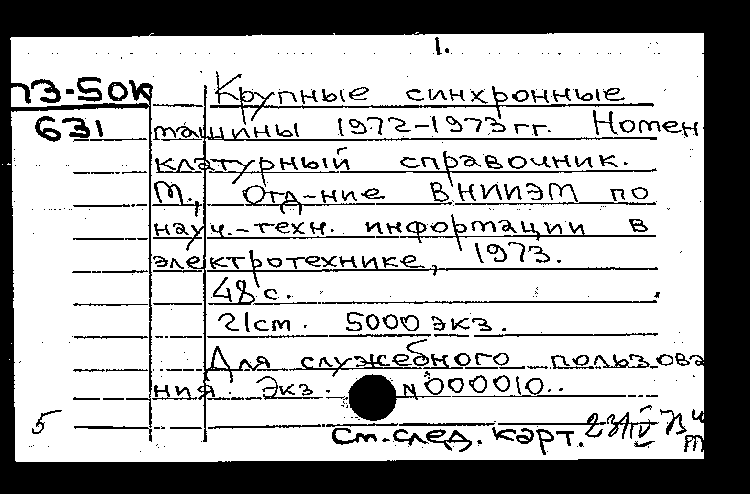 1.
П3-50К Крупные синхронные
631 машины 1972-1973 гг. Номен
клатурный справочник.
М., Отд-ние ВНИИЭМ по
науч.-техн. информации в
электротехнике, 1973.
48 с.
21 см. 5000 экз.
Для служебного пользова
ния. Экз. N 000010..
5
См. след. карт. 23/IV 73